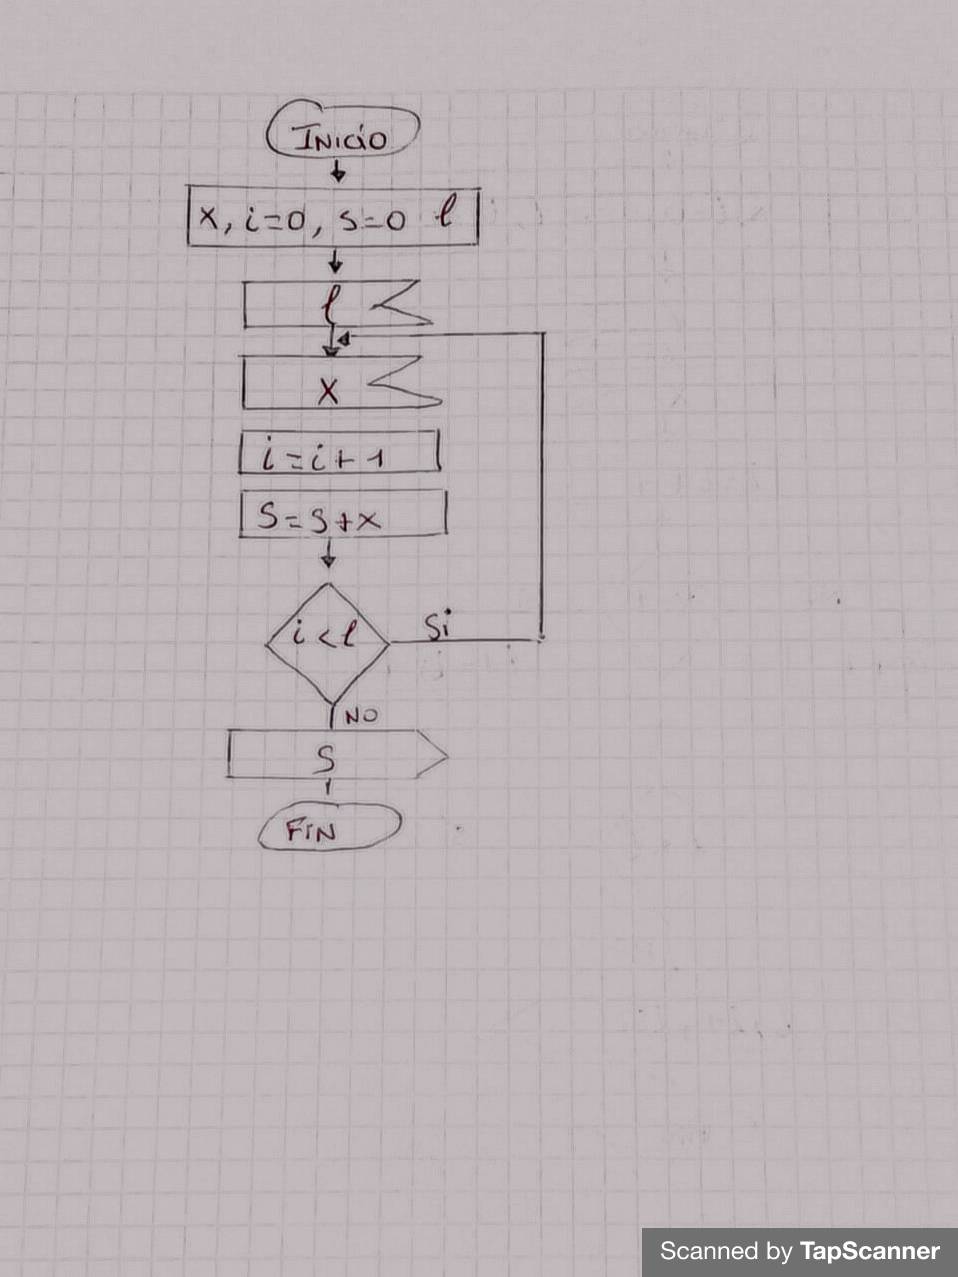 INICIO
x, i=0, s=0 l
l
x
i=i+1
S=S+x
i<l
Si
NO
S
FIN
Scanned by TapScanner